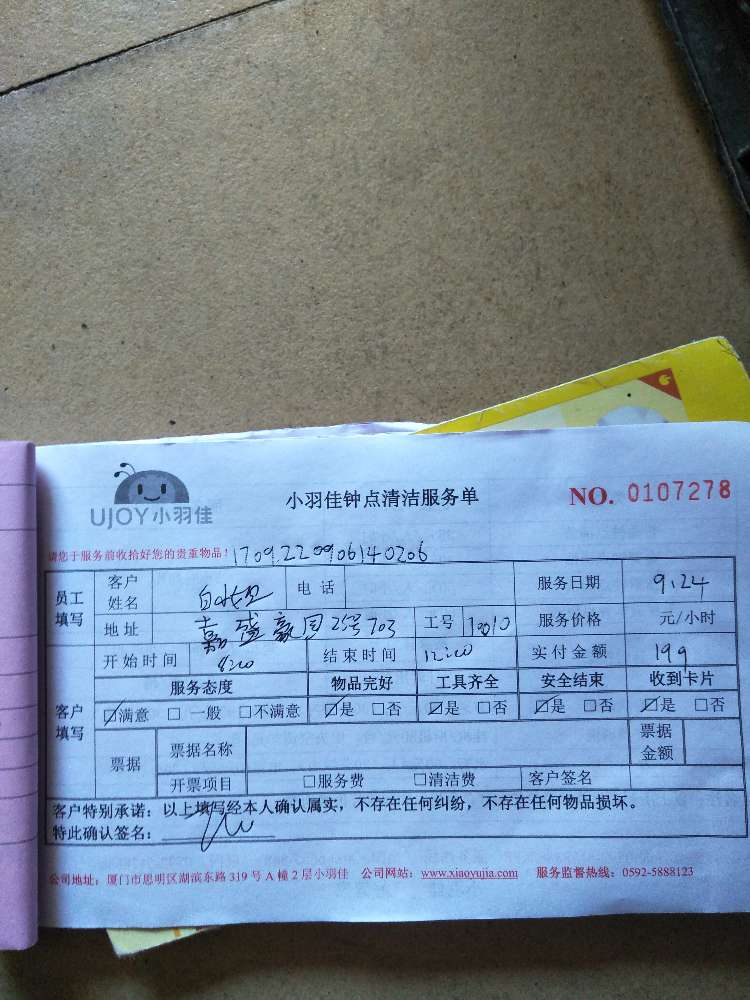 UJOY小羽佳
小羽佳钟点清洁服务单
NO. 0107278
请您于服务前收拾好您的贵重物品! 1709220906140206
员工填写 客户姓名 电话 服务日期 9.24
地址 嘉盛豪园25号703 工号 10010 服务价格 元/小时
开始时间 8:00 结束时间 12:00 实付金额 199
客户填写 服务态度 物品完好 工具齐全 安全结束 收到卡片
☑满意 □ 一般 □不满意 ☑是 □否 ☑是 □否 ☑是 □否 ☑是 □否
票据 票据名称 票据金额
开票项目 □服务费 □清洁费 客户签名
客户特别承诺:以上填写经本人确认属实,不存在任何纠纷,不存在任何物品损坏。
特此确认签名:
公司地址:厦门市思明区湖滨东路 319 号 A 幢 2 层小羽佳 公司网站:www.xiaoyujia.com 服务监督热线:0592-5888123